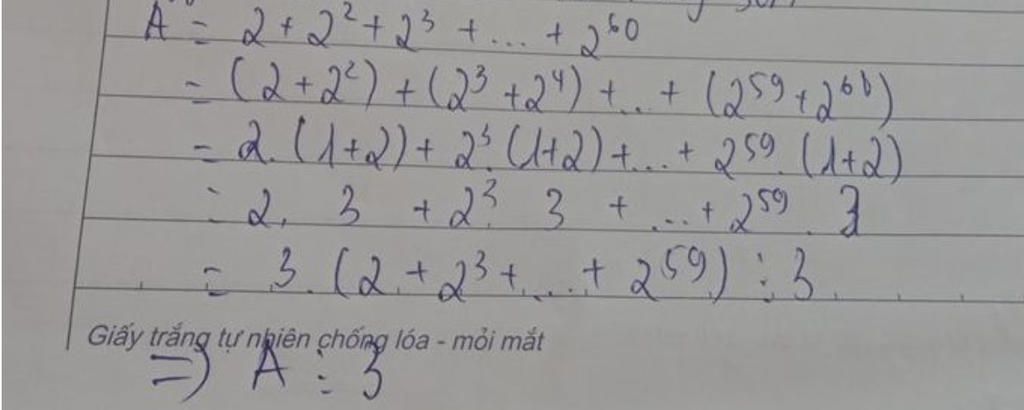 A = 2 + 2² + 2³ + ... + 2⁶⁰
= (2 + 2²) + (2³ + 2⁴) + ... + (2⁵⁹ + 2⁶⁰)
= 2. (1+2) + 2³. (1+2) + ... + 2⁵⁹. (1+2)
= 2. 3 + 2³. 3 + ... + 2⁵⁹. 3
= 3. (2 + 2³ + ... + 2⁵⁹) ⋮ 3
Giấy trắng tự nhiên chống lóa - mỏi mắt
=> A ⋮ 3